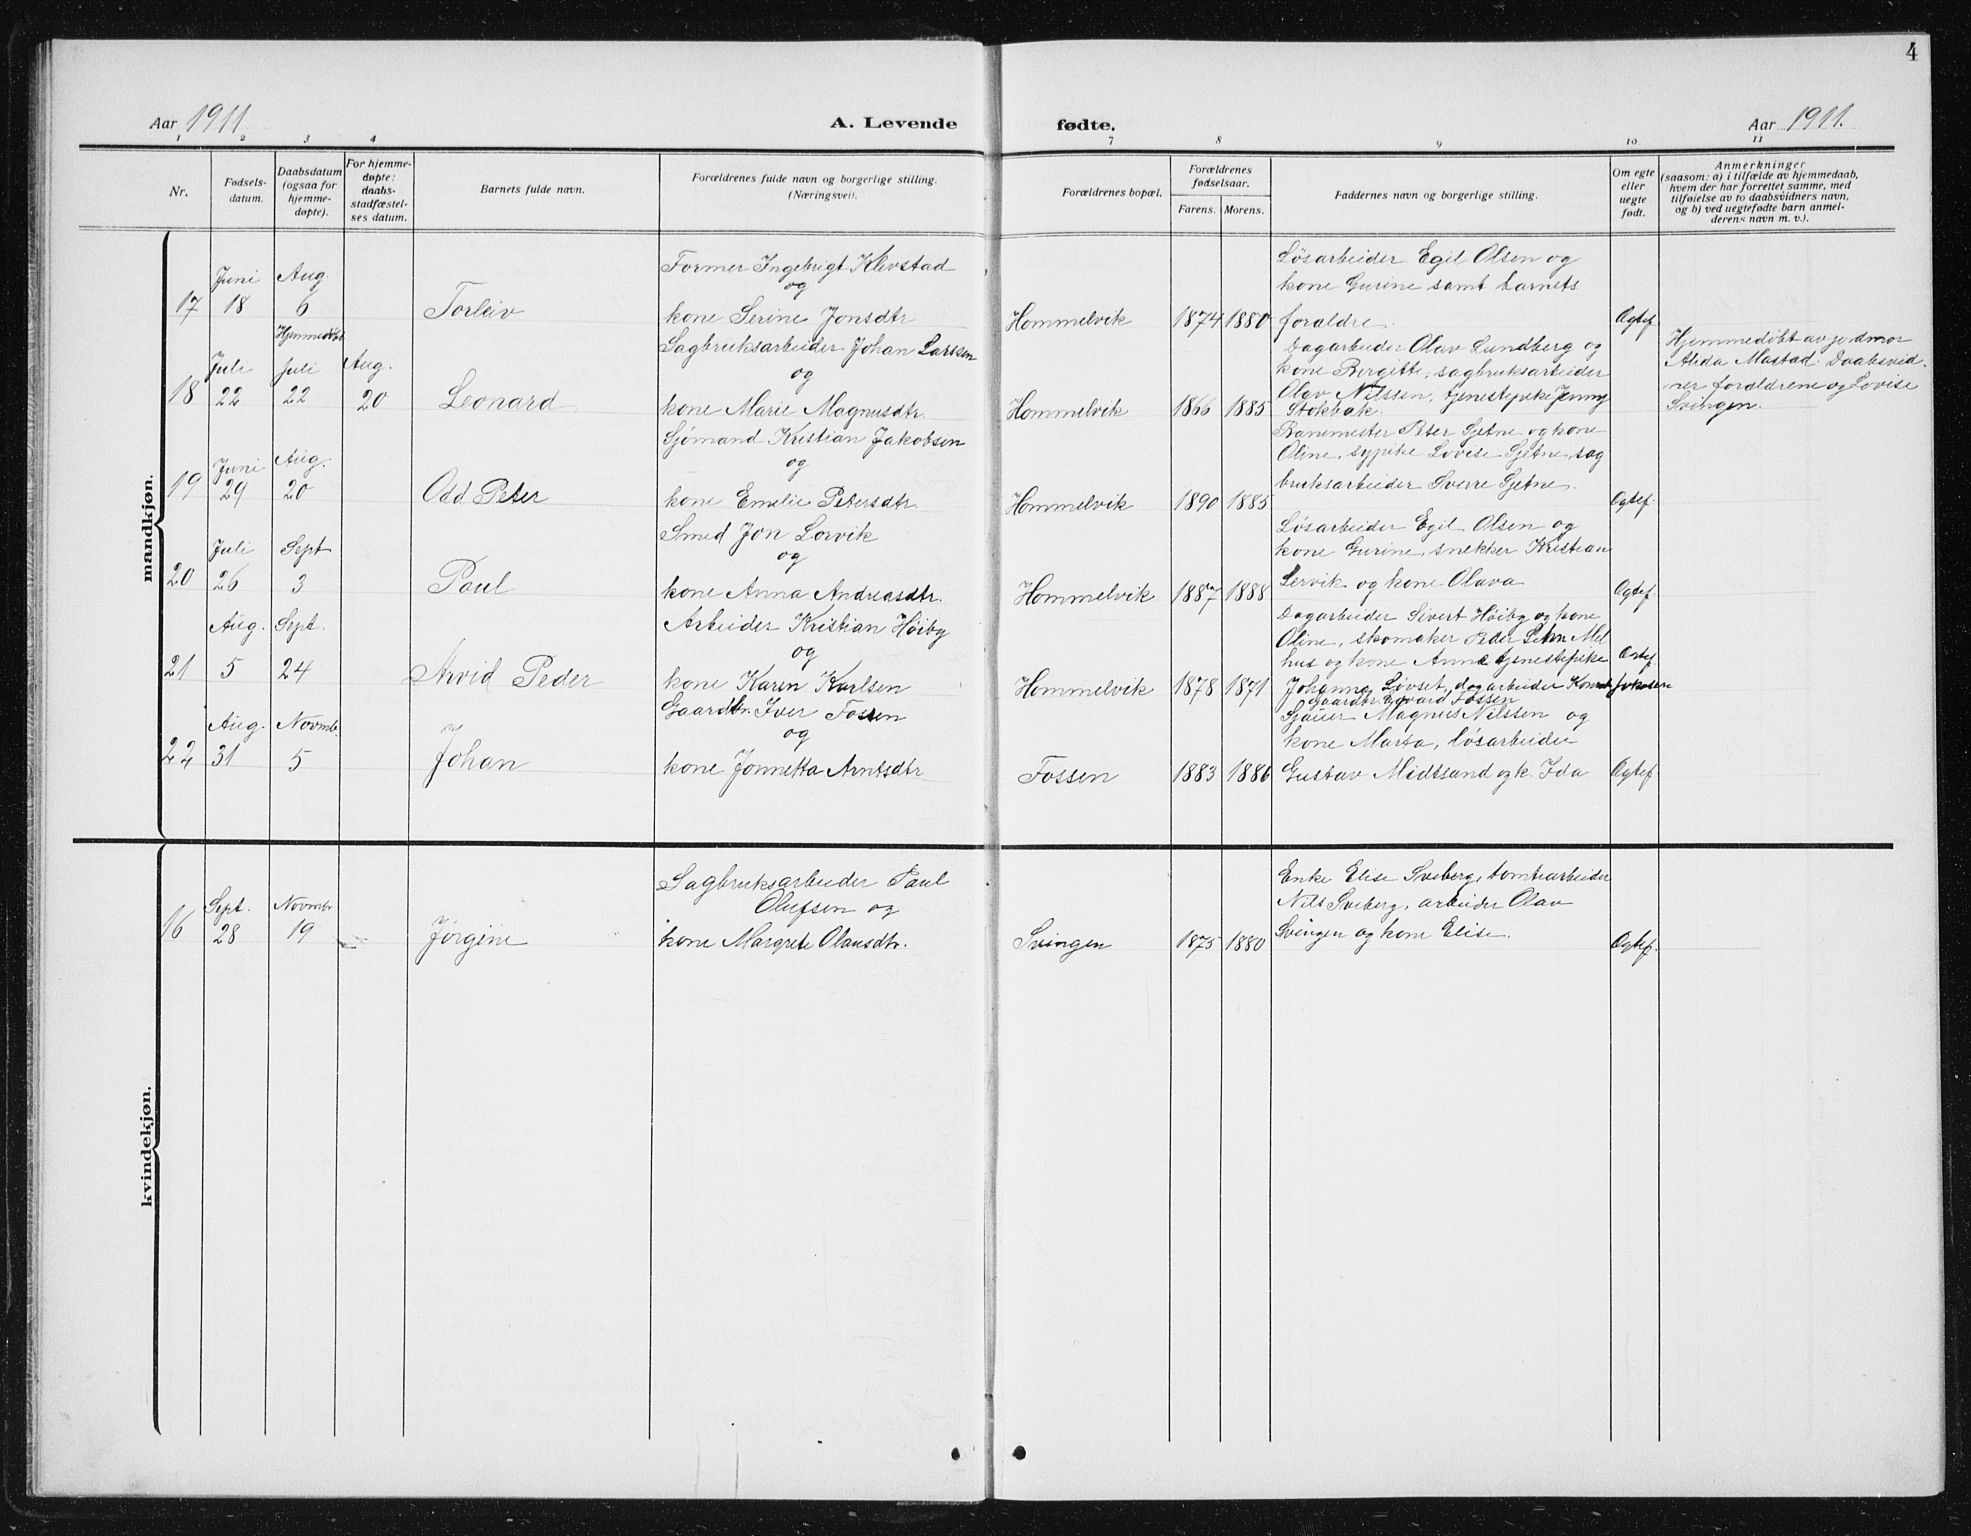 4
Aar 1911
A. Levende fødte.
Aar 1911.
1 2 3 4 7 8 9 10 11
Nr.
Fødsels-
datum.
Daabsdatum
(ogsaa for
hjemme-
døpte).
For hjemme-
døpte:
daabs-
stadfæstel-
ses datum.
Barnets fulde navn.
Forældrenes fulde navn og borgerlige stilling.
(Næringsvei).
Forældrenes bopæl.
Forældrenes
fødselsaar.
Farens. Morens.
Faddernes navn og borgerlige stilling.
Om egte
eller
uegte
født.
Anmerkninger
(saasom: a) i tilfælde av hjemmedaab,
hvem der har forrettet samme, med
tilføielse av to daabsvidners navn,
og b) ved uegtefødte barn anmel-
derens navn m. v.).
mandkjøn.
17
Juni
18
Aug.
6
Torleiv
Former Ingebrigt Klevstad
og
kone Serine Jonsdtr
Hommelvik
1874 1880
Løsarbeider Egil Olsen og
kone Gurine samt barnets
foraldre.
Ogtef
18
Juli
22
Hjemmedøbt
Juli
22
Aug.
20
Leonard
Sagbruksarbeider Johan Larsen
og
kone Marie Magnusdtr.
Hommelvik
1866 1885
Dagarbeider Olav Lundberg og
kone Bergitte, sagbruksarbeider
Olav Nilssen, tjenestepike Jenny
Stokbak.
Hjemmedøbt av jordmor
Alida Mastad. Daabsvid-
ner foraldrene og Lovise
Svingen.
19
Juni
29
Aug.
20
Odd Peter
Sjømand Kristian Jakobsen
og
kone Emelie Petersdtr.
Hommelvik
1890 1885
Banemester Peter Sjetne og kone
Oline, sypike Lovise Sjetne, sag
bruksarbeider Sverre Sjetne.
Ogtef.
20
Juli
26
Sept
3
Paul
Smed Jon Lorvik
og
kone Anna Andreasdtr.
Hommelvik
1887 1888
Løsarbeider Egil Olsen og
kone Gurine, snekker Kristian
Lervik og kone Olava
Ogtef.
21
Aug.
5
Sept.
24
Arvid Peder
Arbeider Kristian Høiby
og
kone Karen Karlsen
Hommelvik
1878 1871
Dagarbeider Sivert Høiby og kone
Oline, skomaker Peder Mel
hus og kone Anna tjenestepike
Johanna Løvset, dagarbeider Jakobsen
Ogtef.
22
Aug.
31
Novmb.
5
Johan
Gaardbr. Iver Fossen
og
kone Jonnetta Arntsdtr
Fossen
1883 1886
Gaardbr Edvard Fossen
Sjauer Magnus Nilssen og
kone Marta, løsarbeider
Gustav Midtsand og k. Ida
Ogtef.
kvindekjøn.
16
Sept.
28
Novmbr
19
Jørgine
Sagbruksarbeider Paul
Olufsen og
kone Margrete Olausdtr.
Svingen
1875 1880
Enke Elise Sveberg, tomtearbeider
Nils Sveberg, arbeider Olav
Svingen og kone Elise.
Ogtef.